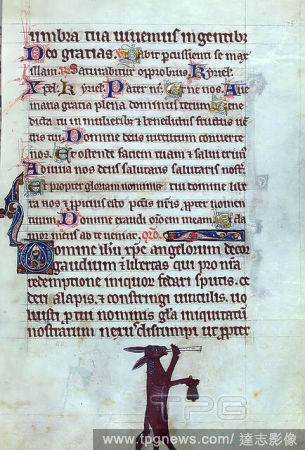 umbra tua vivemus in gentibus
Deo gracias. Dabit percussienti se max
illam. Saturabitur opprobriis. Kyriel.
Xpel. Kyriel. Pater nr. Et ne nos. Ave
maria gratia plena dominus tecum. Bene
dicta tu in mulieribus & benedictus fructus ve
tris tui. Domine deus virtutum converte
nos. Et ostende faciem tuam & salvi erimus
Adiuva nos deus salutaris salutaris noster
Et propter gloriam nominis tui domine libe
ra nos & propicius esto peccatis nostris propter nomen
tuum. Domine exaudi orationem meam. Et cla
mor meus ad te veniat. Oro.
Domine ihu xpe angelorum decor
gaudium & libertas qui pro nra
redemptione iniquorum fedari sputis. ce
di alapis. & constringi vinculis. vo
luisti per tui nominis gloriam iniquitatum
nostrarum nexus disrumpi ut propter
TPG
www.tpgnews.com/ 達志影像